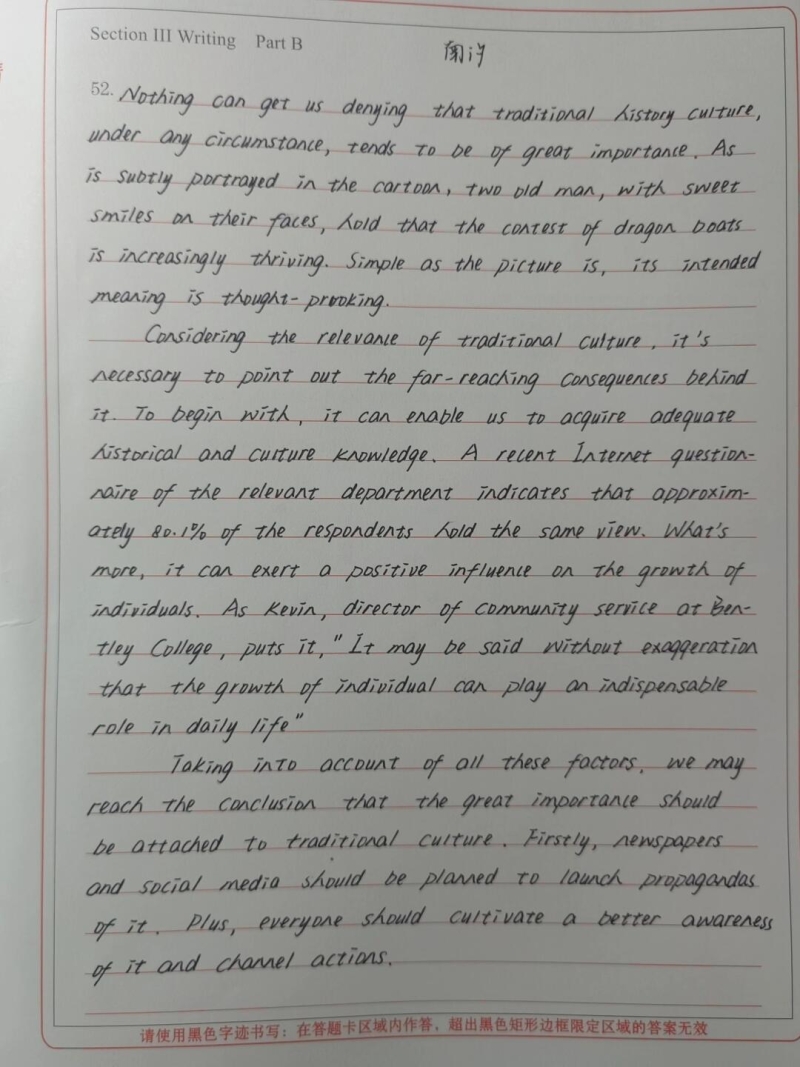 Section III Writing Part B
52. Nothing can get us denying that traditional history culture,
under any circumstance, tends to be of great importance. As
is subtly portrayed in the cartoon, two old man, with sweet
smiles on their faces, hold that the contest of dragon boats
is increasingly thriving. Simple as the picture is, its intended
meaning is thought-provking.
Considering the relevance of traditional culture, it's
necessary to point out the far-reaching consequences behind
it. To begin with, it can enable us to acquire adequate
historical and culture knowledge. A recent Internet question-
naire of the relevant department indicates that approxim-
ately 80.1% of the respondents hold the same view. What's
more, it can exert a positive influence on the growth of
individuals. As Kevin, director of community service at Ben-
tley College, puts it, "It may be said without exaggeration
that the growth of individual can play an indispensable
role in daily life"
Taking into account of all these factors, we may
reach the conclusion that the great importance should
be attached to traditional culture. Firstly, newspapers
and social media should be planned to launch propagandas
of it. Plus, everyone should cultivate a better awareness
of it and channel actions.
请使用黑色字迹书写：在答题卡区域内作答，超出黑色矩形边框限定区域的答案无效